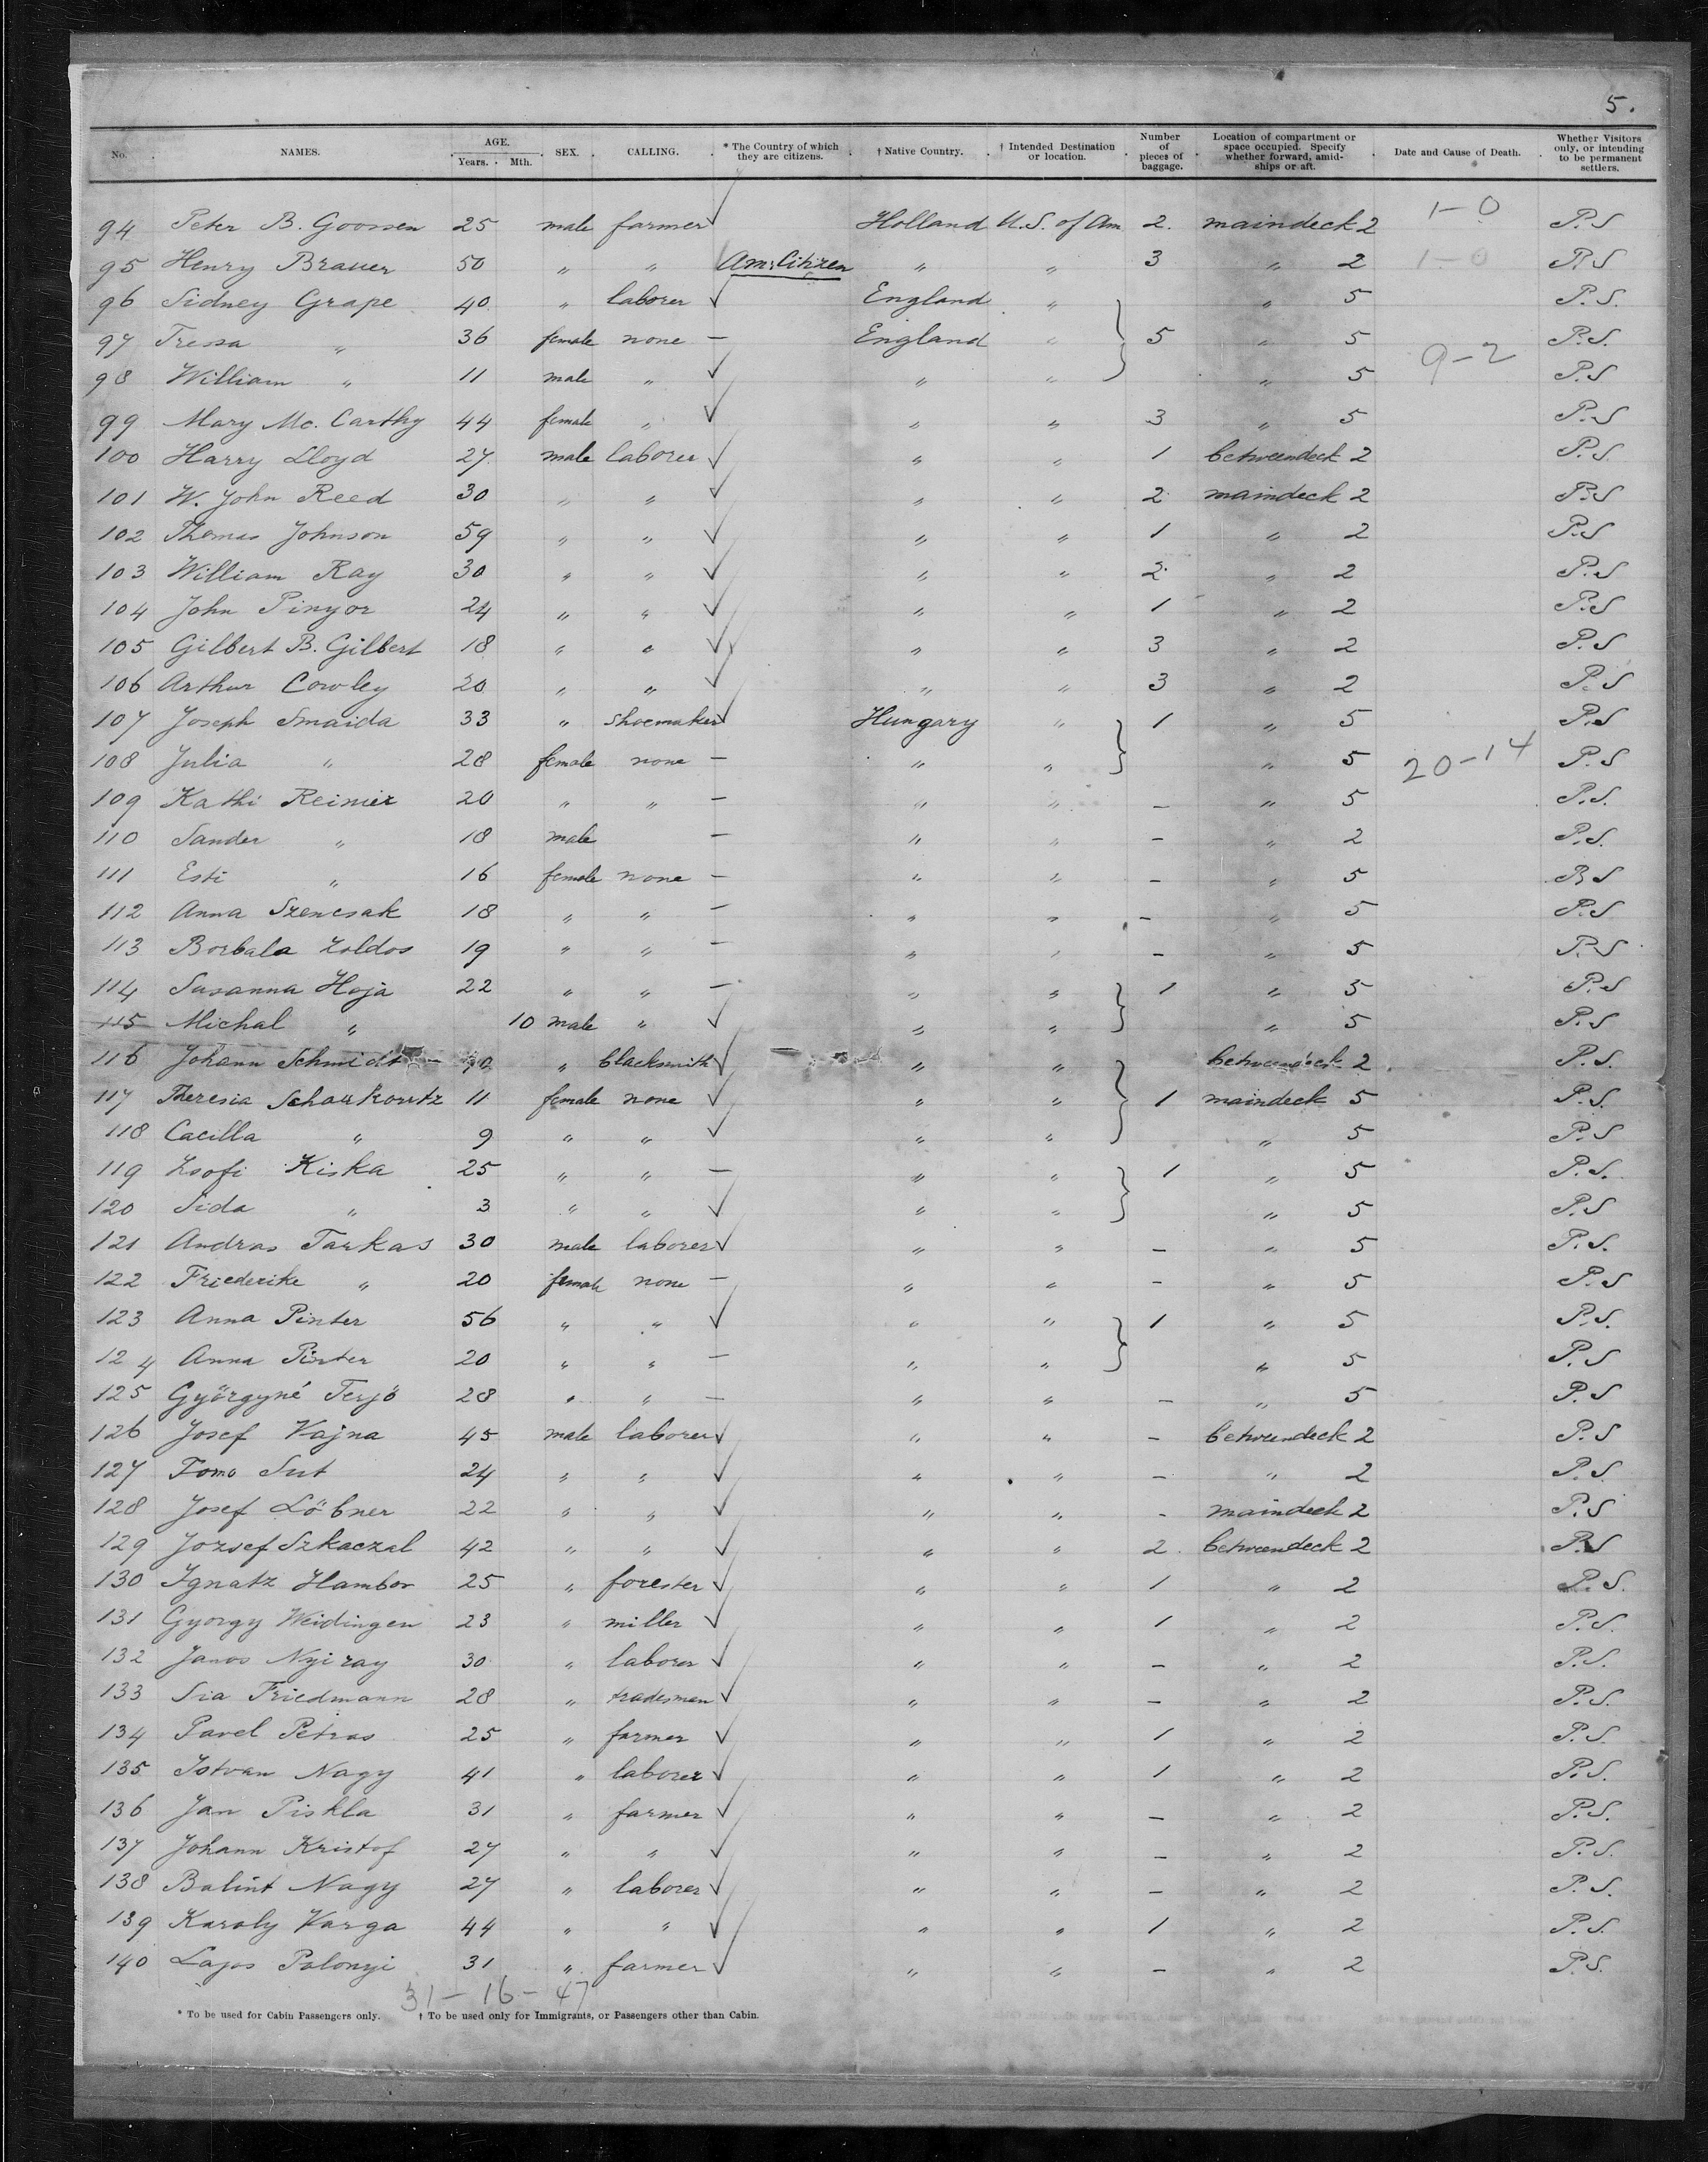 5.
No. NAMES. AGE. Years. Mth. SEX. CALLING. * The Country of which they are citizens. † Native Country. † Intended Destination or location. Number of pieces of baggage. Location of compartment or space occupied. Specify whether forward, amidships or aft. Date and Cause of Death. Whether Visitors only, or intending to be permanent settlers.
94 Peter B. Goossen 25 male farmer ✓ Holland U.S. of Am 2. maindeck 2 1-0 P.S
95 Henry Brauer 50 " " Am. Citizen " " 3 " 2 1-0 P.S
96 Sidney Grape 40 " laborer ✓ England " " 5 P.S.
97 Tressa " 36 female none — England " 5 " 5 P.S.
98 William " 11 male " ✓ " " " 5 9-2 P.S
99 Mary Mc. Carthy 44 female " ✓ " " 3 " 5 P.S
100 Harry Lloyd 27 male laborer ✓ " " 1 betweendeck 2 P.S.
101 W. John Reed 30 " " ✓ " " 2 maindeck 2 P.S
102 Thomas Johnson 59 " " ✓ " " 1 " 2 P.S
103 William Ray 30 " " ✓ " " 2 " 2 P.S
104 John Pinyor 24 " " ✓ " " 1 " 2 P.S
105 Gilbert B. Gilbert 18 " " ✓ " " 3 " 2 P.S
106 Arthur Cowley 20 " " ✓ " " 3 " 2 P.S
107 Joseph Smaida 33 " shoemaker ✓ Hungary " 1 " 5 P.S
108 Julia " 28 female none — " " " 5 20-14 P.S
109 Kathi Reinier 20 " " — " " — " 5 P.S.
110 Sander " 18 male — " " — " 2 P.S.
111 Esti " 16 female none — " " — " 5 P.S
112 Anna Szencsak 18 " " — " " — " 5 P.S
113 Borbala Zoldos 19 " " — " " — " 5 P.S
114 Susanna Hoja 22 " " — " " 1 " 5 P.S
115 Michal " 10 male " ✓ " " " 5 P.S
116 Johann Schmidt " blacksmith ✓ " " betweendeck 2 P.S.
117 Theresia Scharkowtz 11 female none ✓ " " 1 maindeck 5 P.S.
118 Cacilla " 9 " " ✓ " " " 5 P.S
119 Zsofi Kiska 25 " " — " " 1 " 5 P.S.
120 Sida " 3 " " ✓ " " " 5 P.S
121 Andras Tarkas 30 male laborer ✓ " " — " 5 P.S.
122 Friederike " 20 female none — " " — " 5 P.S
123 Anna Pinter 56 " " ✓ " " 1 " 5 P.S.
124 Anna Pinter 20 " " — " " " 5 P.S
125 Györgyné Terjö 28 " " — " " — " 5 P.S
126 Josef Vajna 45 male laborer ✓ " " — betweendeck 2 P.S
127 Tomo Sut 24 " " ✓ " " — " 2 P.S.
128 Josef Löbner 22 " " ✓ " " - maindeck 2 P.S
129 Jozsef Szkaczal 42 " " ✓ " " 2. betweendeck 2 P.S
130 Ignatz Hambor 25 " forester ✓ " " 1 " 2 P.S.
131 Gyorgy Weidingen 23 " miller ✓ " " 1 " 2 P.S.
132 Janos Nyiray 30 " laborer ✓ " " — " 2 P.S.
133 Sia Friedmann 28 " tradesman ✓ " " — " 2 P.S.
134 Pavel Petras 25 " farmer ✓ " " 1 " 2 P.S.
135 Istvan Nagy 41 " laborer ✓ " " 1 " 2 P.S.
136 Jan Piskla 31 " farmer ✓ " " — " 2 P.S.
137 Johann Kristof 27 " " ✓ " " — " 2 P.S.
138 Balint Nagy 27 " laborer ✓ " " — " 2 P.S.
139 Karoly Varga 44 " " ✓ " " 1 " 2 P.S.
140 Lajos Polonyi 31 " farmer ✓ " " — " 2 P.S.
31-16-47
* To be used for Cabin Passengers only. † To be used only for Immigrants, or Passengers other than Cabin.